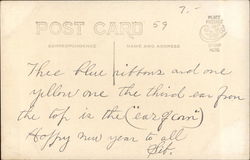 7.-
POST CARD 59
CORRESPONDENCE NAME AND ADDRESS
PLACE
STAMP
HERE
Thee blue ribbons and one
yellow one the third ear from
the top is the ("ear corn")
Happy new year to all
Sib.